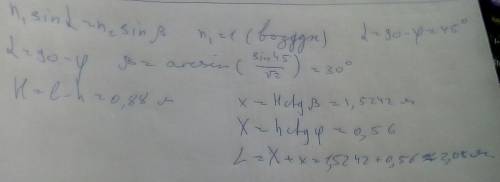 n₁ sin α = n₂ sin β   n₁ = 1 (воздух)   α = 90 - φ = 45°
α = 90 - φ   β = arcsin ( sin 45 / √2 ) = 30°
H = l - h = 0,88 м
x = H ctg β = 1,5242 м
X = h ctg φ = 0,56
L = X + x = 1,5242 + 0,56 ≈ 2,08 м